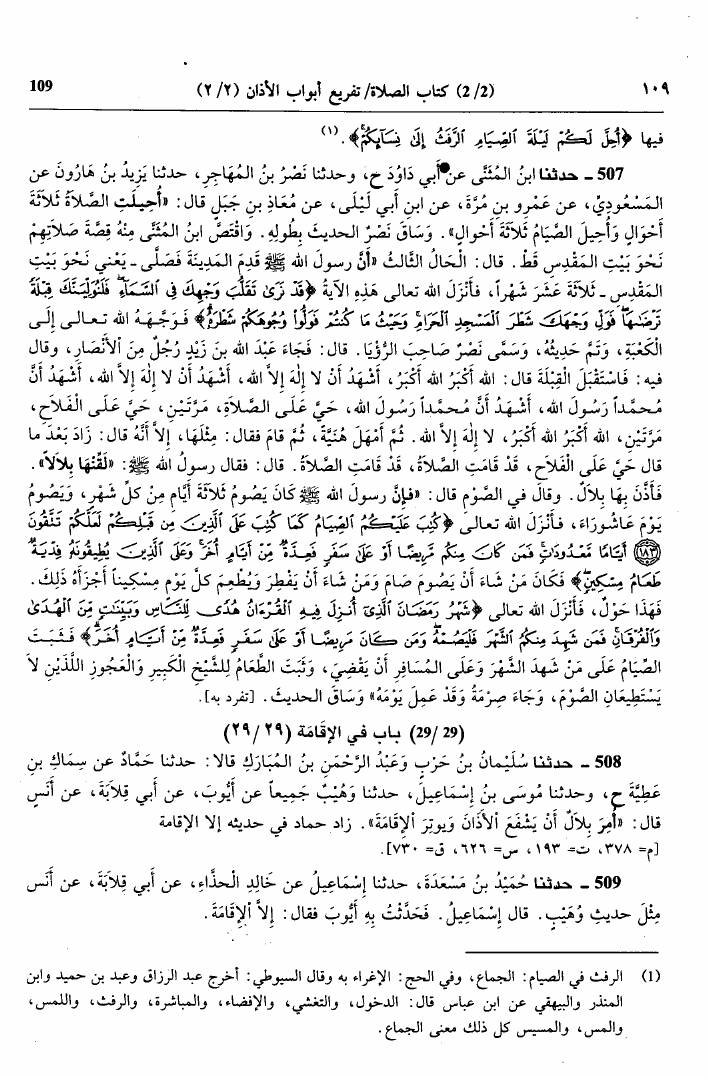 ١٠٩ (2/2) كتاب الصلاة/ تفريع أبواب الأذان (٢/٢) 109
فيها ﴿أُحِلَّ لَكُمْ لَيْلَةَ ٱلصِّيَامِ ٱلرَّفَثُ إِلَىٰ نِسَآئِكُمْ﴾. (١)
507 ـ حدثنا ابنُ المُثَنَّى عن أبي دَاوُدَ ح، وحدثنا نَصْرُ بنُ المُهَاجِرِ، حدثنا يَزِيدُ بنُ هَارُونَ عن
المَسْعُودِيِّ، عن عَمْرِو بنِ مُرَّةَ، عن ابنِ أبي لَيْلَى، عن مُعَاذِ بنِ جَبَلٍ قال: «أُحِيلَتِ الصَّلاَةُ ثَلاَثَةَ
أَحْوَالٍ وَأُحِيلَ الصِّيَامُ ثَلاَثَةَ أحْوَالٍ». وَسَاقَ نَصْرٌ الحديثَ بِطُولِهِ. وَاقْتَصَّ ابنُ المُثَنَّى مِنْهُ قِصَّةَ صَلاَتِهِمْ
نَحْوَ بَيْتِ المَقْدِسِ قَط. قال: الْحَالُ الثَّالِثُ «أَنَّ رسولَ الله ﷺ قَدِمَ المَدِينَةَ فَصَلَّى ـ يَعْني نَحْوَ بَيْتِ
المَقْدِسِ ـ ثَلاَثَةَ عَشَرَ شَهْراً، فأنْزَلَ الله تعالى هَذِهِ الآيةَ ﴿قَدْ نَرَىٰ تَقَلُّبَ وَجْهِكَ فِي ٱلسَّمَآءِ فَلَنُوَلِّيَنَّكَ قِبْلَةً
تَرْضَىٰهَا فَوَلِّ وَجْهَكَ شَطْرَ ٱلْمَسْجِدِ ٱلْحَرَامِ وَحَيْثُ مَا كُنتُمْ فَوَلُّوا۟ وُجُوهَكُمْ شَطْرَهُ﴾ فَوَجَّهَهُ الله تعالى إلَى
الْكَعْبَةِ، وَتَمَّ حَدِيثُهُ، وَسَمَّى نَصْرٌ صَاحِبَ الرُّؤْيَا. قال: فَجَاءَ عَبْدُ الله بنُ زَيْدٍ رُجُلٌ مِنَ الأَنْصَارِ، وقال
فيه: فَاسْتَقْبَلَ الْقِبْلَةَ قال: الله أكْبَرُ الله أكْبَرُ، أَشْهَدُ أَنْ لا إلٰهَ إلاَّ الله، أَشْهَدُ أَنْ لا إلٰهَ إلاَّ الله، أَشْهَدُ أنَّ
مُحمَّداً رَسُولَ الله، أَشْهَدُ أَنَّ مُحمَّداً رَسُولَ الله، حَيَّ عَلَى الصَّلاَةِ، مَرَّتَيْنِ، حَيَّ عَلَى الْفَلاَحِ،
مَرَّتَيْنِ، الله أكْبَرُ الله أكْبَرُ، لا إلهَ إلاَّ الله. ثُمَّ أمْهَلَ هُنَيَّةً، ثُمَّ قامَ فقال: مِثْلَهَا، إلاَّ أنَّهُ قال: زَادَ بَعْدَ ما
قال حَيَّ عَلَى الْفَلاَحِ، قَدْ قَامَتِ الصَّلاَةُ، قَدْ قَامَتِ الصَّلاَةُ. قال: فقال رسولُ الله ﷺ: «لَقِّنْهَا بِلاَلاً».
فأَذَّنَ بِهَا بِلاَلٌ. وقال في الصَّوْمِ قال: «فإنَّ رسولَ الله ﷺ كَانَ يَصُومُ ثَلاَثَةَ أَيَّامٍ مِنْ كلِّ شَهْرٍ، وَيَصُومُ
يَوْمَ عَاشُورَاءَ، فأَنْزَلَ الله تعالى ﴿كُتِبَ عَلَيْكُمُ ٱلصِّيَامُ كَمَا كُتِبَ عَلَى ٱلَّذِينَ مِن قَبْلِكُمْ لَعَلَّكُمْ تَتَّقُونَ
(١٨٣) أَيَّامًا مَّعْدُودَاتٍ فَمَن كَانَ مِنكُم مَّرِيضًا أَوْ عَلَىٰ سَفَرٍ فَعِدَّةٌ مِّنْ أَيَّامٍ أُخَرَ وَعَلَى ٱلَّذِينَ يُطِيقُونَهُ فِدْيَةٌ
طَعَامُ مِسْكِينٍ﴾ فَكَانَ مَنْ شَاءَ أَنْ يَصُومَ صَامَ وَمَنْ شَاءَ أَنْ يَفْطِرَ وَيُطْعِمَ كلَّ يَوْمٍ مِسْكِيناً أجْزَأَهُ ذَلِكَ.
فَهَذَا حَوْلٌ، فَأَنْزَلَ الله تعالى ﴿شَهْرُ رَمَضَانَ ٱلَّذِىٓ أُنزِلَ فِيهِ ٱلْقُرْءَانُ هُدًى لِّلنَّاسِ وَبَيِّنَٰتٍ مِّنَ ٱلْهُدَىٰ
وَٱلْفُرْقَانِ فَمَن شَهِدَ مِنكُمُ ٱلشَّهْرَ فَلْيَصُمْهُ وَمَن كَانَ مَرِيضًا أَوْ عَلَىٰ سَفَرٍ فَعِدَّةٌ مِّنْ أَيَّامٍ أُخَرَ﴾ فَثَبَتَ
الصِّيَامُ عَلَى مَنْ شَهِدَ الشَّهْرَ وَعَلَى المُسَافِرِ أَنْ يَقْضِيَ، وَثَبَتَ الطَّعَامُ لِلشَّيْخِ الْكَبِيرِ وَالْعَجُوزِ اللَّذَيْنِ لاَ
يَسْتَطِيعَانِ الصَّوْمَ، وَجَاءَ صِرْمَةُ وَقَدْ عَمِلَ يَوْمَهُ» وَسَاقَ الحديثَ. [تفرد به].
(29/ 29) باب في الإقَامَة (٢٩/٢٩)
508 ـ حدثنا سُلَيْمانُ بنُ حَرْبٍ وَعَبْدُ الرَّحْمَنِ بنُ المُبَارَكِ قالا: حدثنا حَمَّادٌ عن سِمَاكِ بنِ
عَطِيَّةَ ح، وحدثنا مُوسَى بنُ إسْمَاعِيلَ، حدثنا وُهَيْبٌ جَمِيعاً عن أيُّوبَ، عن أبي قِلاَبَةَ، عن أنَسٍ
قال: «أُمِرَ بِلاَلٌ أَنْ يَشْفَعَ الأَذَانَ وَيوتِرَ الإِقَامَةَ». زاد حماد في حديثه إلا الإقامة
[م= ٣٧٨، ت= ١٩٣، س= ٦٢٦، ق= ٧٣٠].
509 ـ حدثنا حُمَيْدُ بنُ مَسْعَدَةَ، حدثنا إسْمَاعِيلُ عن خَالِدٍ الْحذَّاءِ، عن أبي قِلاَبَةَ، عن أنَس
مِثْلَ حديثِ وُهَيْبٍ. قال إسْمَاعِيلُ. فَحَدَّثْتُ بِهِ أيُّوبَ فقال: إلاَّ الإقَامَةَ.
(1) الرفث في الصيام: الجماع، وفي الحج: الإغراء به وقال السيوطي: أخرج عبد الرزاق وعبد بن حميد وابن
المنذر والبيهقي عن ابن عباس قال: الدخول، والتغشي، والإفضاء، والمباشرة، والرفث، واللمس،
والمس، والمسيس كل ذلك معنى الجماع.